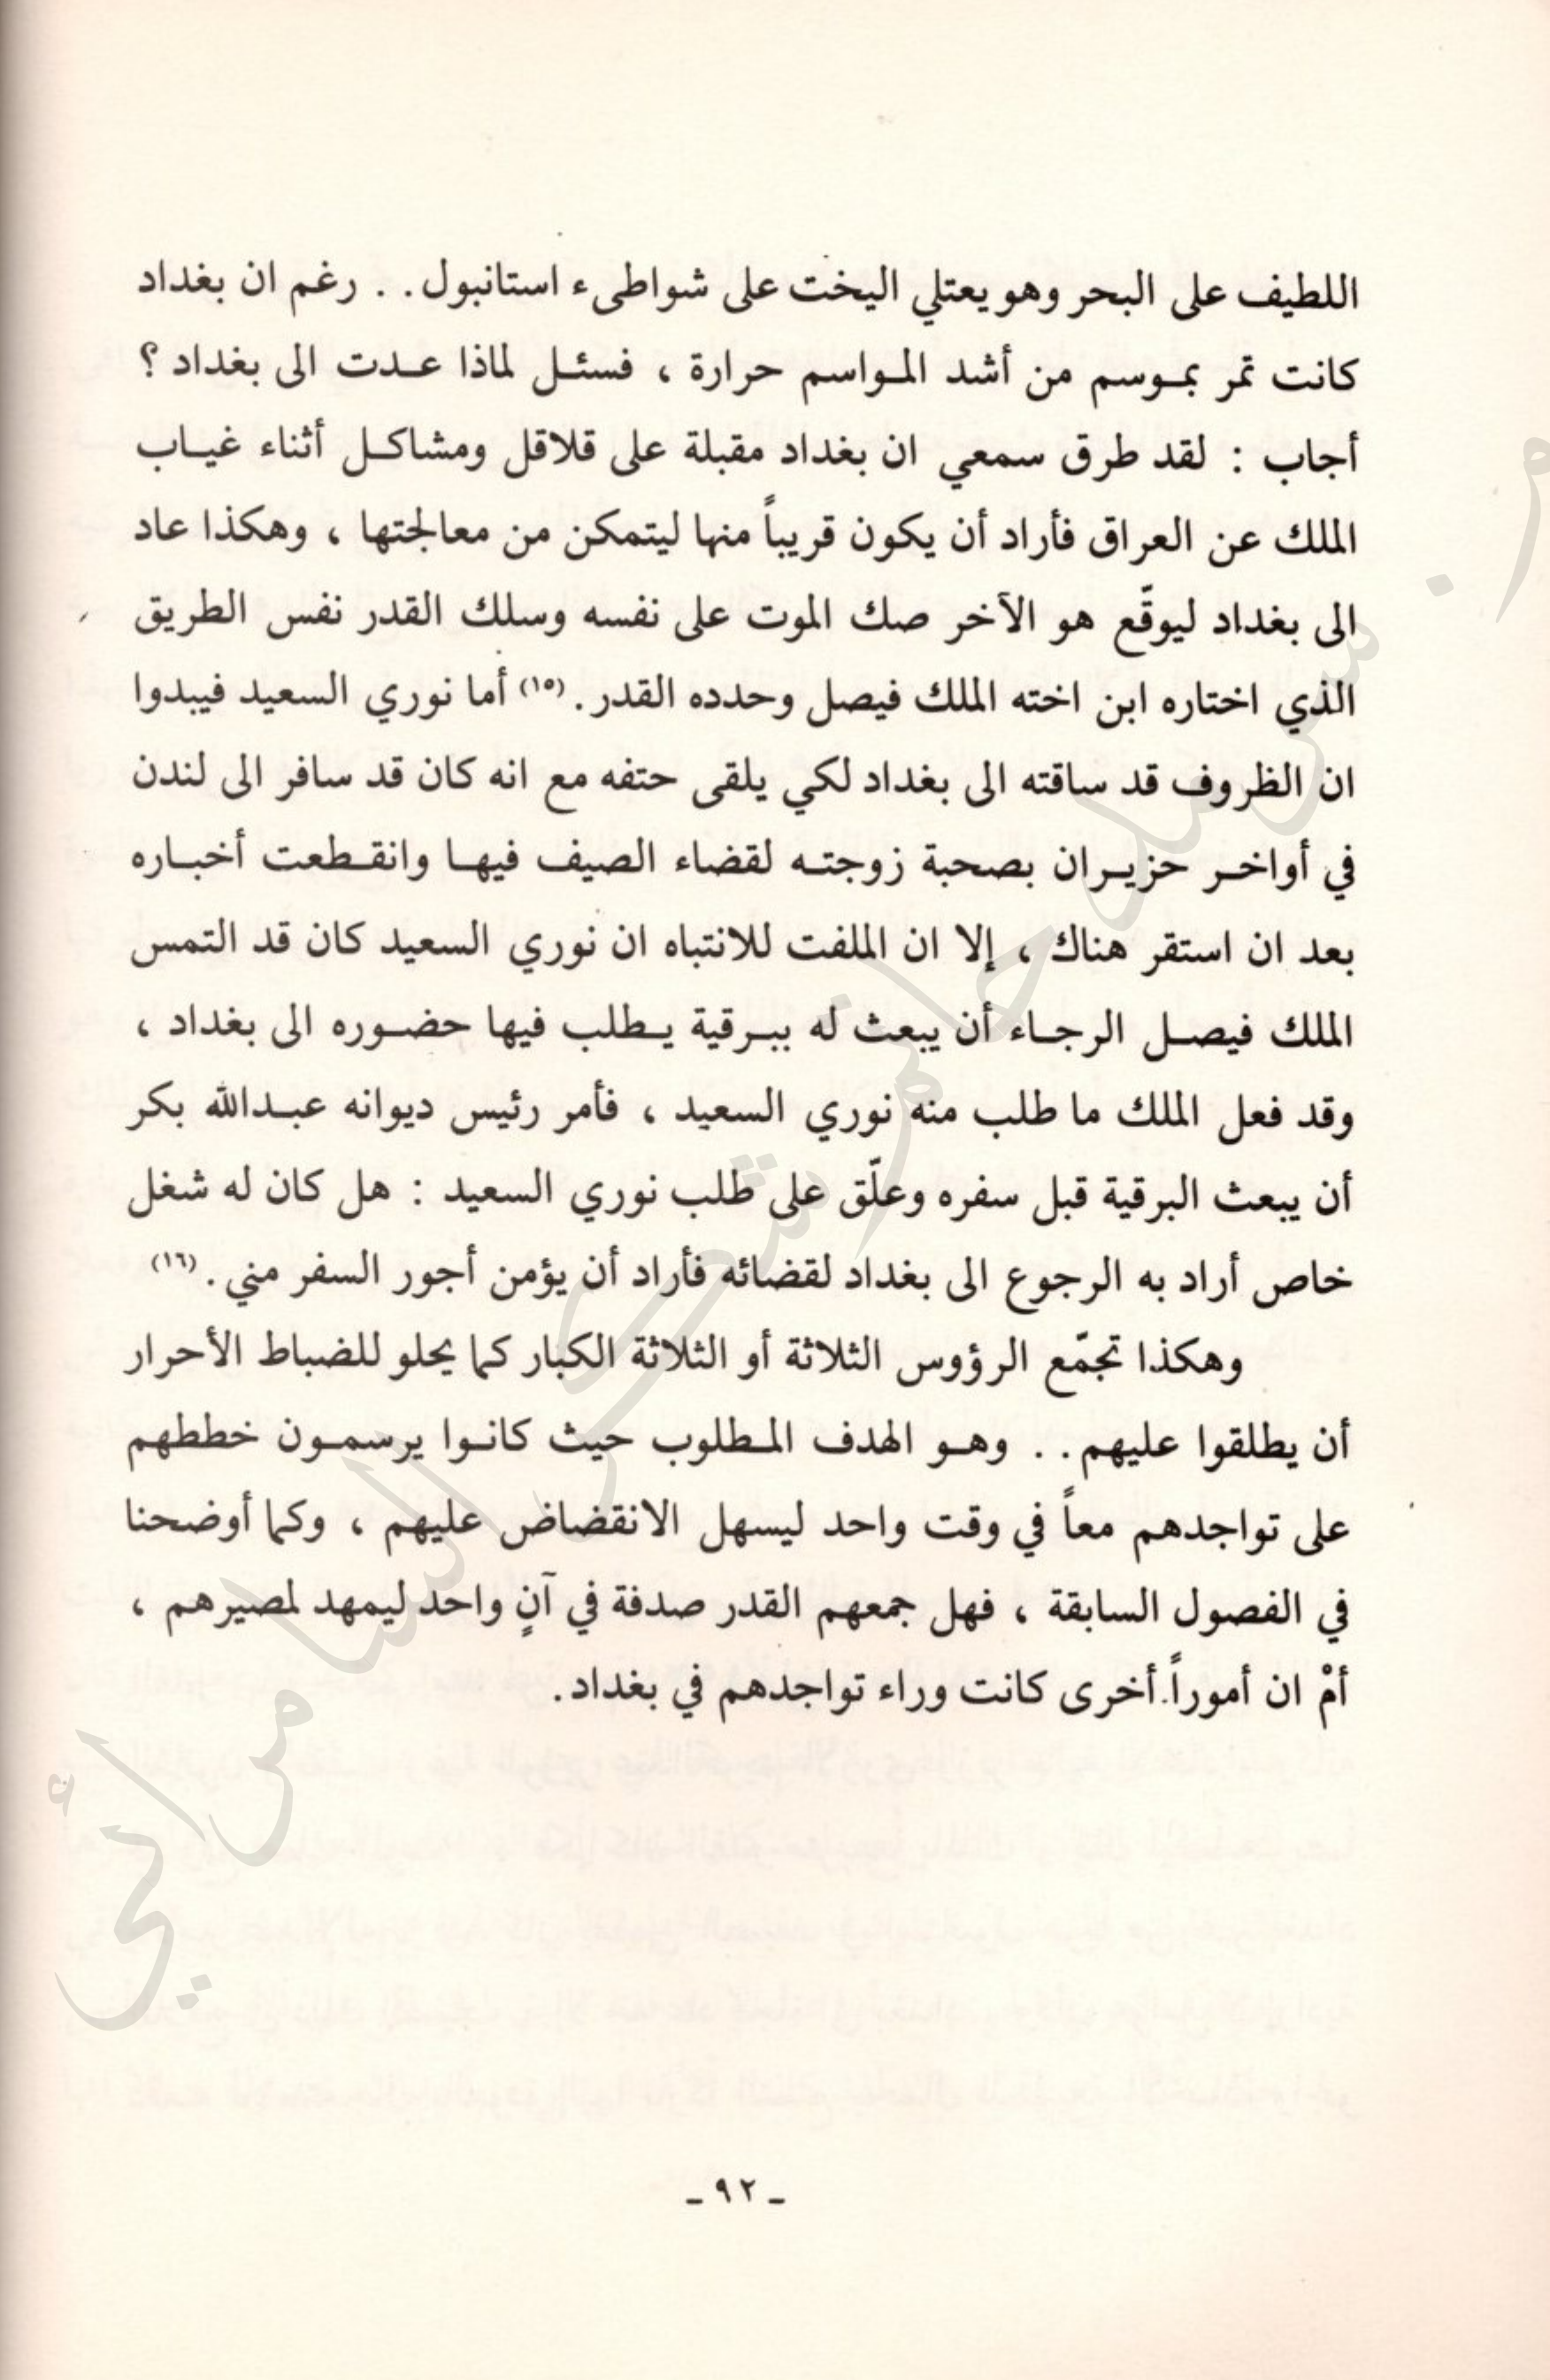 اللطيف على البحر وهو يعتلي اليخت على شواطىء استانبول . . رغم ان بغداد
كانت تمر بمـوسم من أشد المـواسم حرارة ، فسئـل لماذا عـدت الى بغداد ؟
أجاب : لقد طرق سمعي ان بغداد مقبلة على قلاقل ومشاكـل أثناء غيـاب
الملك عن العراق فأراد أن يكون قريباً منها ليتمكن من معالجتها ، وهكذا عاد
الى بغداد ليوقّع هو الآخر صك الموت على نفسه وسلك القدر نفس الطريق
الذي اختاره ابن اخته الملك فيصل وحدده القدر . (١٥) أما نوري السعيد فيبدوا
ان الظروف قد ساقته الى بغداد لكي يلقى حتفه مع انه كان قد سافر الى لندن
في أواخـر حزيـران بصحبة زوجتـه لقضاء الصيف فيهـا وانقـطعت أخبـاره
بعد ان استقر هناك ، إلا ان الملفت للانتباه ان نوري السعيد كان قد التمس
الملك فيصـل الرجـاء أن يبعث له ببـرقية يـطلب فيها حضـوره الى بغداد ،
وقد فعل الملك ما طلب منه نوري السعيد ، فأمر رئيس ديوانه عبـدالله بكر
أن يبعث البرقية قبل سفره وعلّق على طلب نوري السعيد : هل كان له شغل
خاص أراد به الرجوع الى بغداد لقضائه فأراد أن يؤمن أجور السفر مني . (١٦)
وهكذا تجمّع الرؤوس الثلاثة أو الثلاثة الكبار كما يحلو للضباط الأحرار
أن يطلقوا عليهم . . وهـو الهدف المـطلوب حيث كانـوا يرسمـون خططهم
على تواجدهم معاً في وقت واحد ليسهل الانقضاض عليهم ، وكما أوضحنا
في الفصول السابقة ، فهل جمعهم القدر صدفة في آنٍ واحد ليمهد لمصيرهم ،
أمْ ان أموراً أخرى كانت وراء تواجدهم في بغداد .
ـ ٩٢ ـ